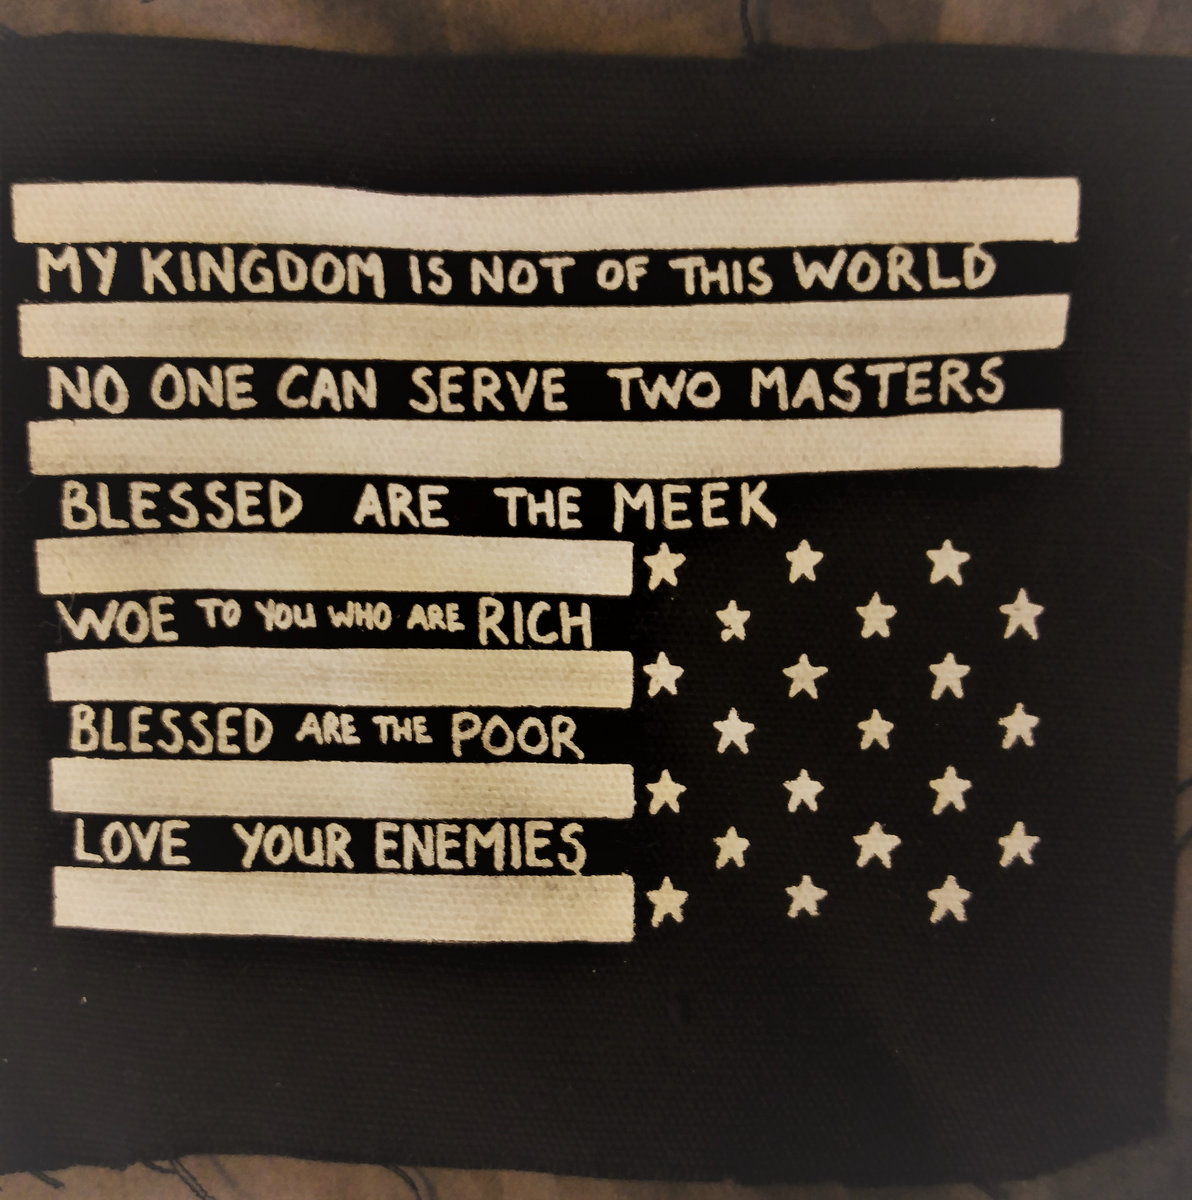 MY KINGDOM IS NOT OF THIS WORLD
NO ONE CAN SERVE TWO MASTERS
BLESSED ARE THE MEEK
WOE TO YOU WHO ARE RICH
BLESSED ARE THE POOR
LOVE YOUR ENEMIES